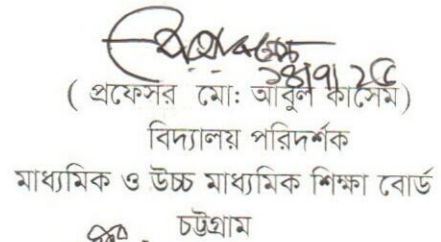 ২৪/৭/২৫
( প্রফেসর মো: আবুল কাসেম)
বিদ্যালয় পরিদর্শক
মাধ্যমিক ও উচ্চ মাধ্যমিক শিক্ষা বোর্ড
চট্টগ্রাম